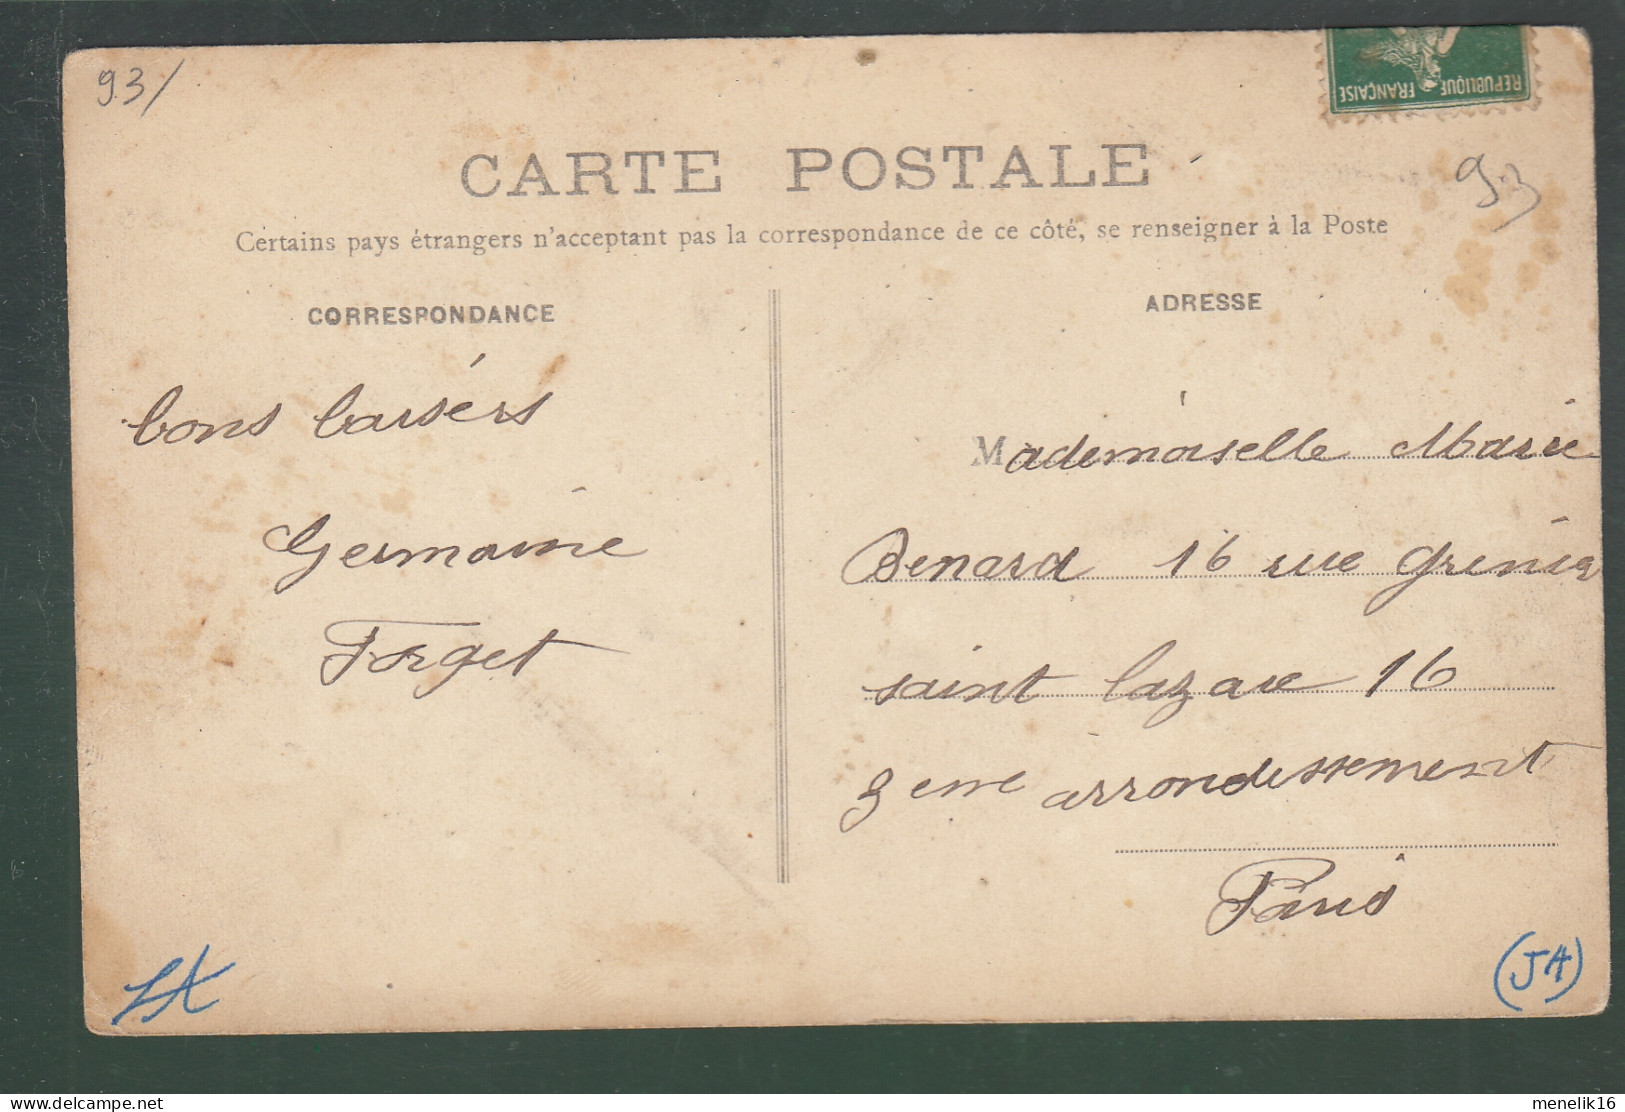 93/
REPUBLIQUE FRANÇAISE
CARTE POSTALE
93
Certains pays étrangers n'acceptant pas la correspondance de ce côté, se renseigner à la Poste
CORRESPONDANCE
bons baisers
Germaine
Forget
ADRESSE
Mademoiselle Marie
Benard 16 rue Grenier
saint lazare 16
3 eme arrondissement
Paris
(JA)
delcampe.net
menelik16